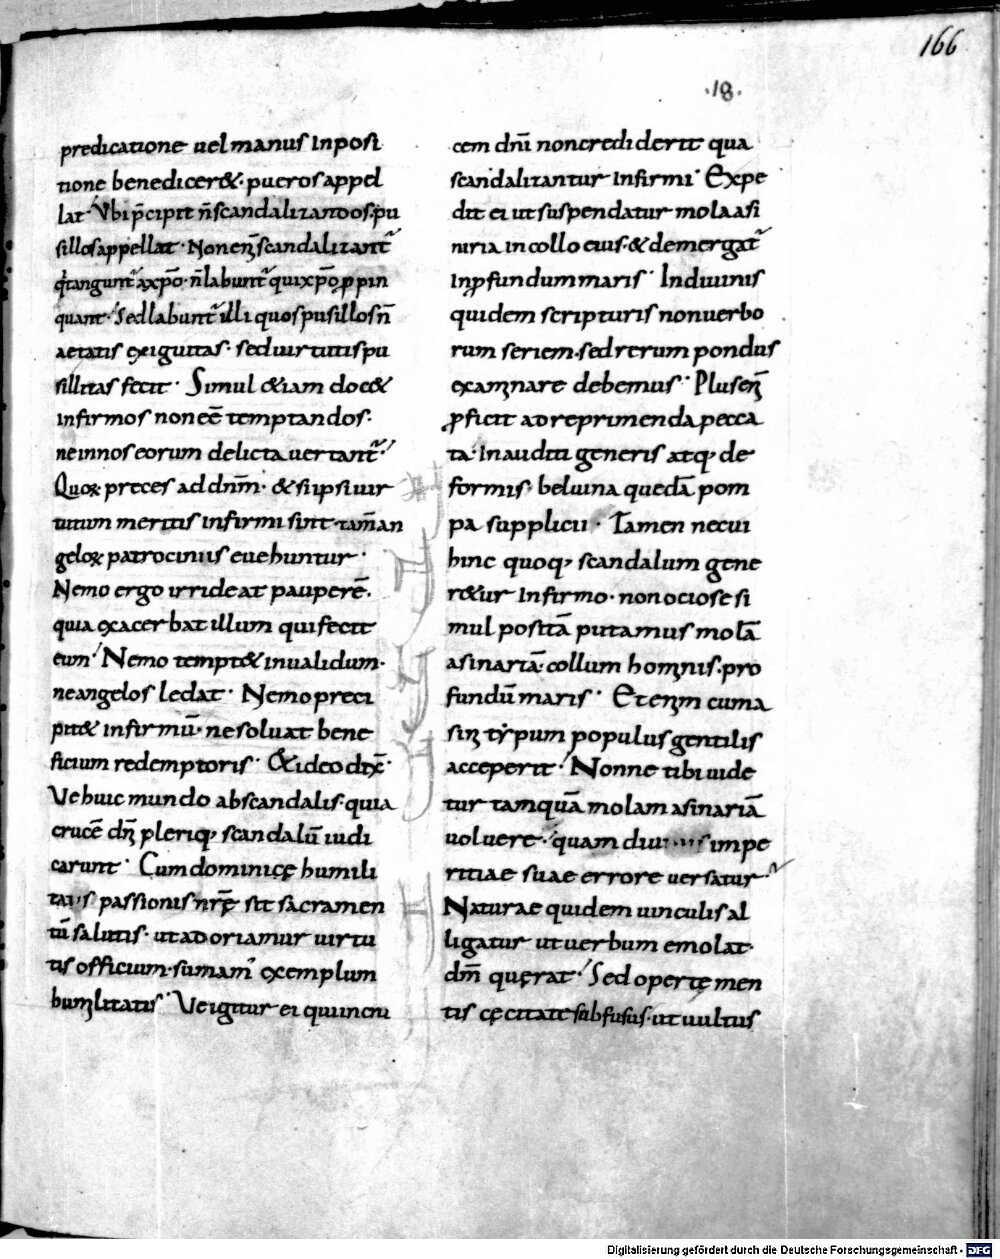 166
.18.
predicatione uel manus inposi
tione benediceret · pueros appel
lat · Vbi p̄cipit n̄ scandalizandos pu
sillos appellat · Non eni̅ scandalizant᷑
q̇ tangunt᷑ a xp̄o · n̄ labunt᷑ qui xp̄o ꝓpin
quant · Sed labunt᷑ illi quos pusillos n̄
aetatis exiguitas · sed uirtutis pu
sillitas fecit · Simul &iam doc&
infirmos non ee̅ temptandos ·
ne in nos eorum delicta uertant᷑ ·
Quoꝝ preces ad dn̅m · & si ipsi uir
tutum meritis infirmi sint · tam̅ an
geloꝝ patrociniis euehuntur ·
Nemo ergo irrideat paupere̅ ·
quia exacerbat illum qui fecit
eum · Nemo tempt& inualidum ·
ne angelos ledat · Nemo preci
pit& infirmu̅ · ne soluat bene
ficium redemptoris · Et ideo dix̅ ·
Ve huic mundo ab scandalis · quia
cruce̅ dn̅i pleriq; scandalu̅ iudi
carunt · Cum dominicę humili
tatis passionis nr̅ę sit sacramen
tu̅ salutis · ut adoriamur uirtu
tis officium · sumam᾽ exemplum
humilitatis · Ve igitur ei qui in cru
cem dn̅i non crediderit qua
scandalizantur infirmi · Expe
dit ei ut suspendatur mola asi
niria in collo eius · & demergat᷑
in ꝓfundum maris · In diuinis
quidem scripturis non uerbo
rum seriem · sed rerum pondus
examinare debemus · Plus eni̅
ꝓficit ad reprimenda pecca
ta · inauditi generis atq; de
formis · beluina queda̅ pom
pa supplicii · Tamen ne cui
hinc quoq; scandalum gene
r&ur infirmo · non ociose si
mul posita̅ putamus mola̅
asinaria̅ · collum hominis · pro
fundu̅ maris · Etenim cum a
sini typum populus gentilis
acceperit · Nonne tibi uide
tur tamqua̅ molam asinaria̅
uoluere · quam diu suis impe
ritiae suae errore uersatur ·
Naturae quidem uinculis al
ligatur ut uerbum emolat ·
dm̅ quęrat · Sed opertę men
tis cęcitate subfusus · ut uultus
Digitalisierung gefördert durch die Deutsche Forschungsgemeinschaft - DFG